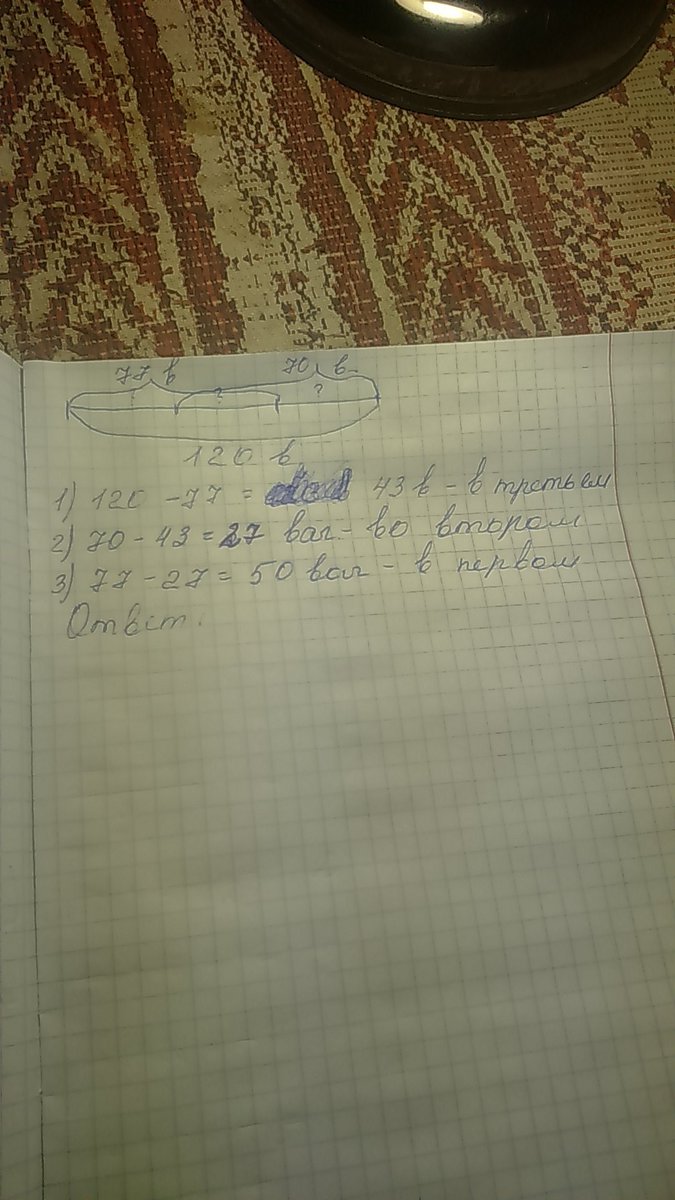 77 в 70 в
? ? ?
120 в
1) 120 - 77 = 43 в - в третьем
2) 70 - 43 = 27 ваг - во втором
3) 77 - 27 = 50 ваг - в первом
Ответ.